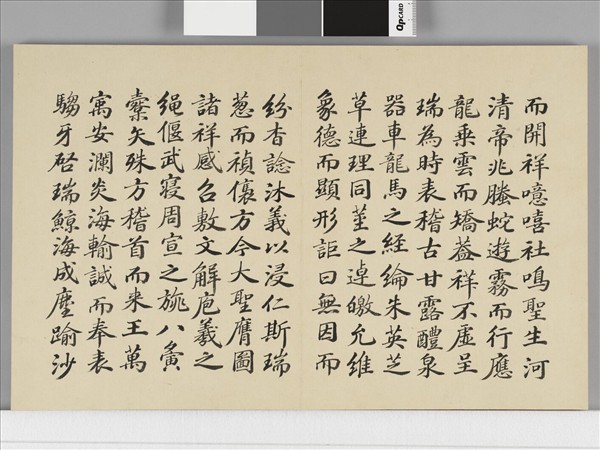 而開祥噫嘻社鳴聖生河
清帝兆螣蛇遊霧而行應
龍乘雲而矯葢祥不虛呈
瑞為時表稽古甘露醴泉
器車龍馬之経綸朱英芝
草連理同莖之逴皦允維
象德而顯形詎曰無因而
紛杳諗沐義以浸仁斯瑞
葱而禎儴方今大聖膺圖
諸祥感召敷文解庖羲之
繩偃武寢周宣之旐八夤
櫜矢殊方稽首而来王萬
寓安瀾炎海輸誠而奉表
騶牙啓瑞鯨海成塵踰沙
QPCARD